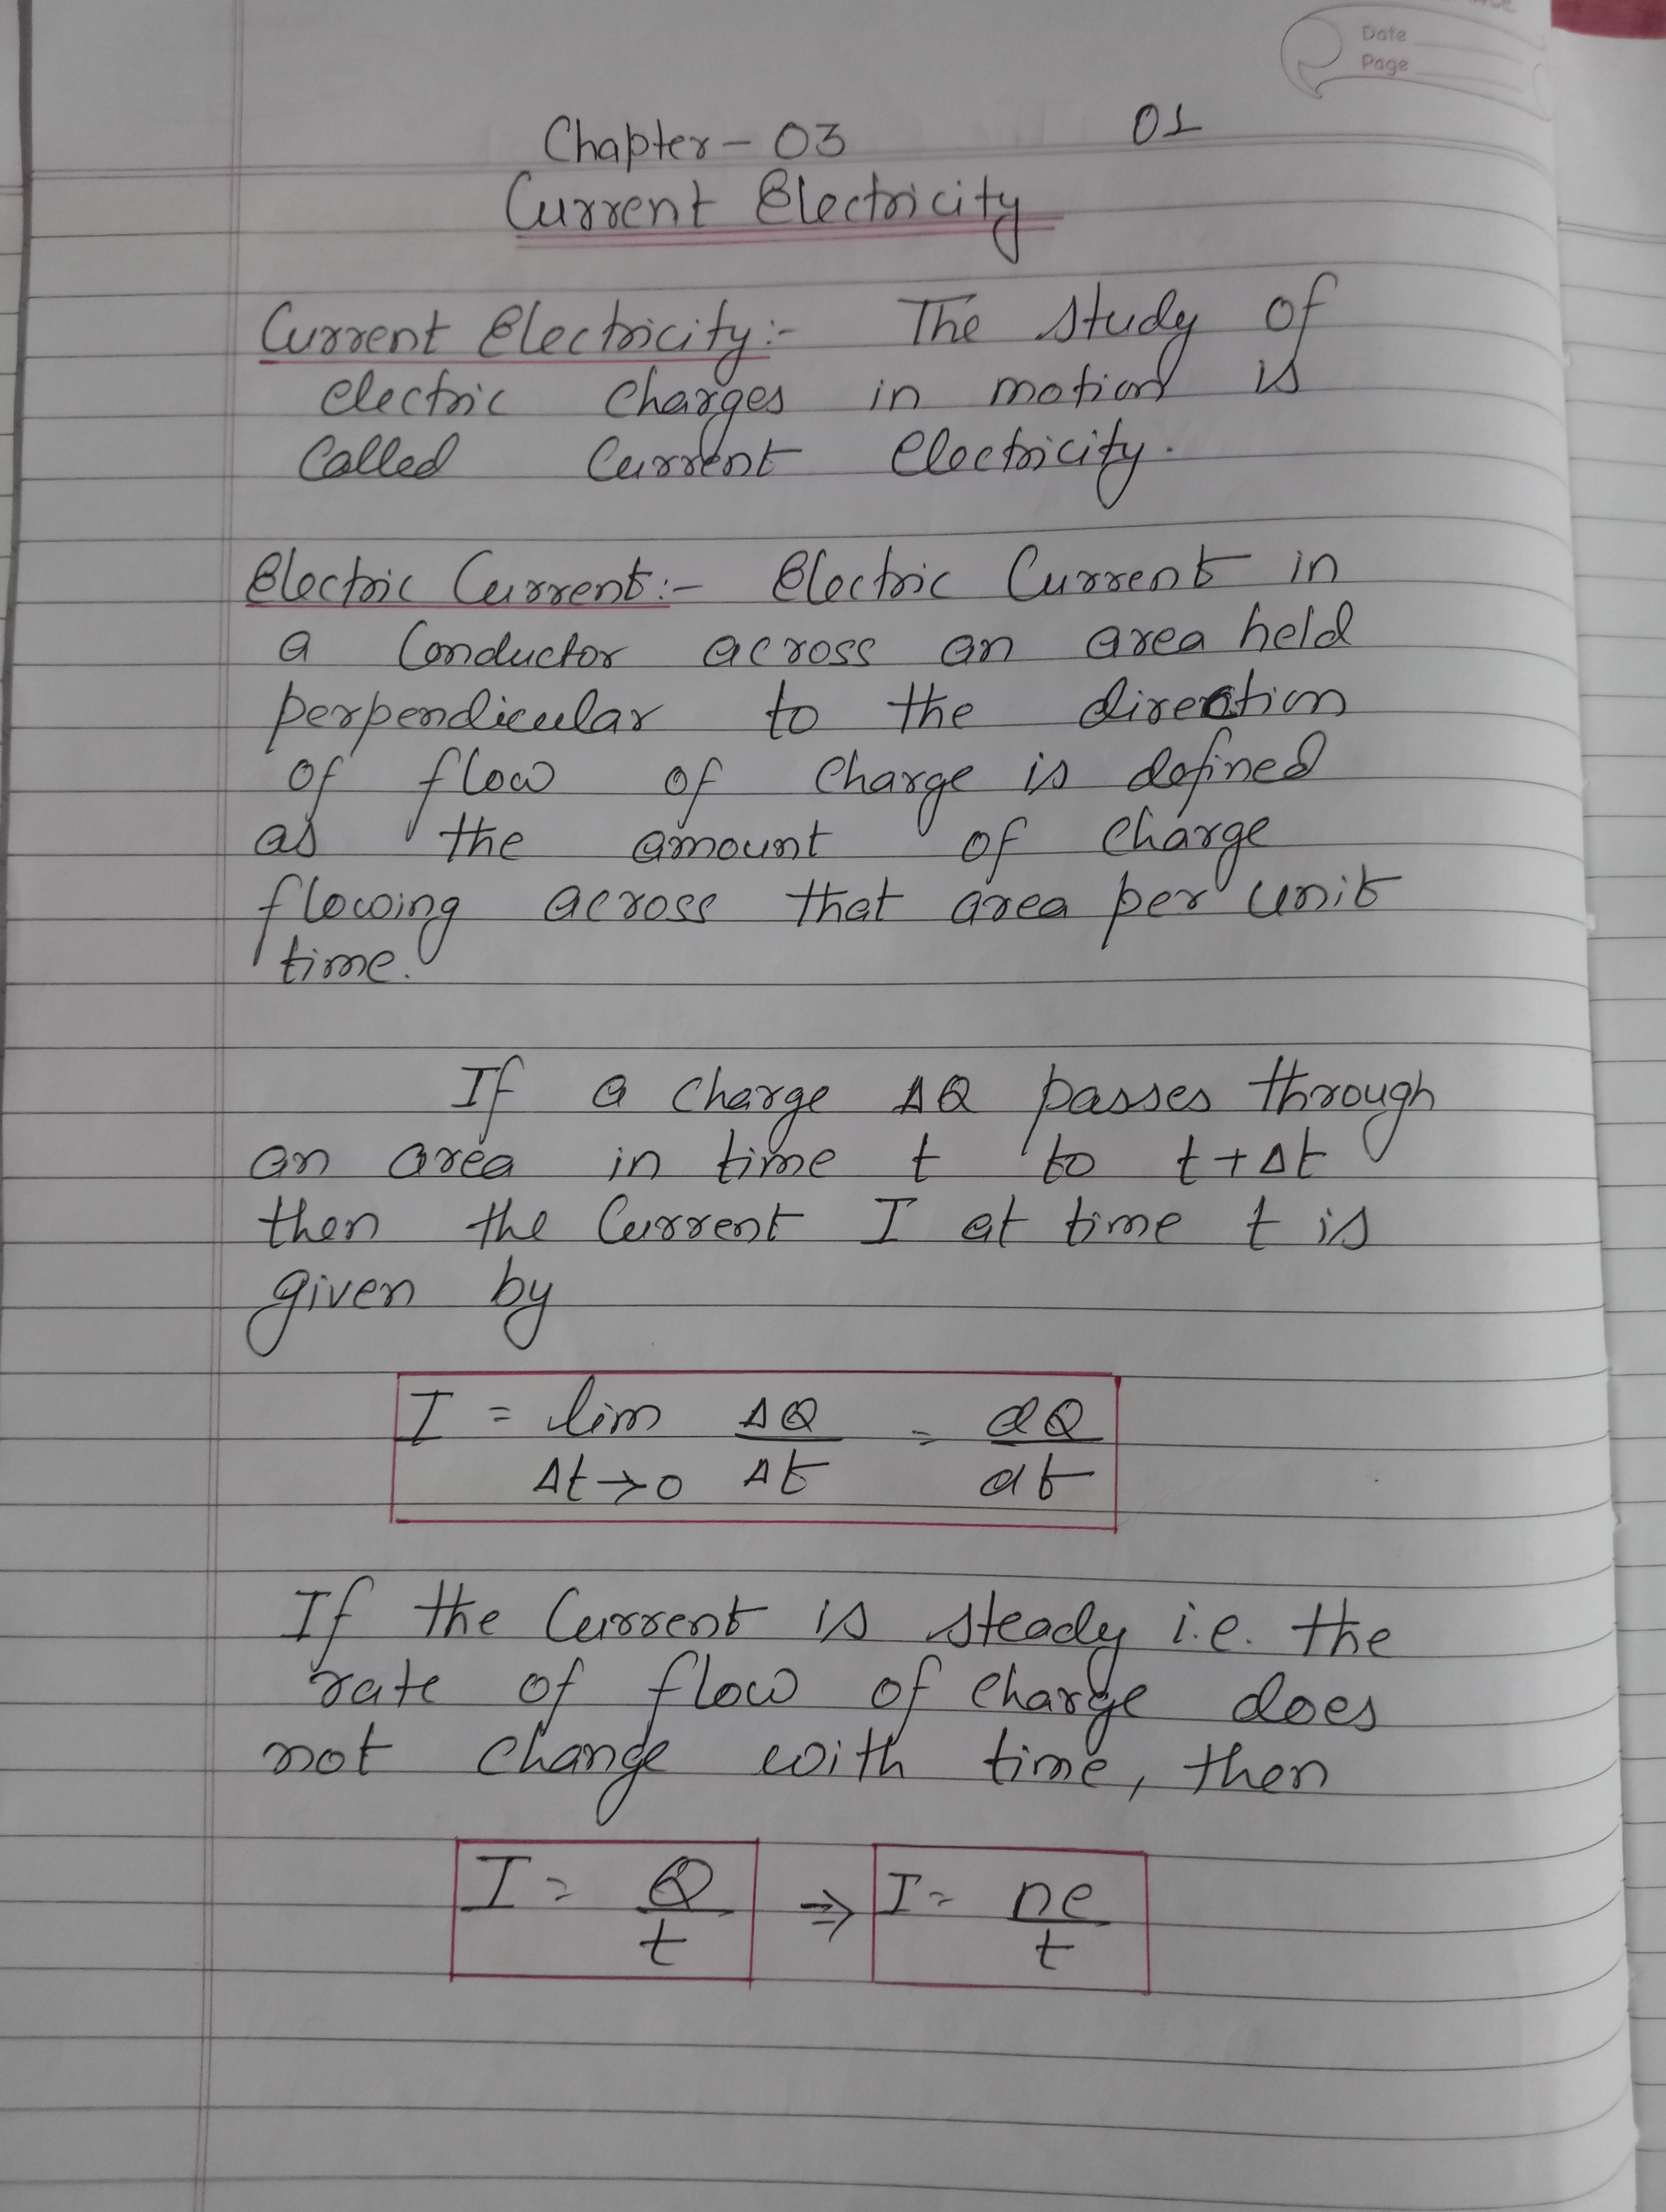 Date
Page
01
Chapter - 03
Current Electricity
Current Electricity:- The study of
electric charges in motion is
called current electricity.
Electric Current:- Electric Current in
a conductor across an area held
perpendicular to the direction
of flow of charge is defined
as the amount of charge
flowing across that area per unit
time.
If a charge ΔQ passes through
an area in time t to t+Δt
then the current I at time t is
given by
I = lim ΔQ = dQ
Δt→0 Δt dt
If the current is steady i.e. the
rate of flow of charge does
not change with time, then
I = Q ⇒ I = ne
t t